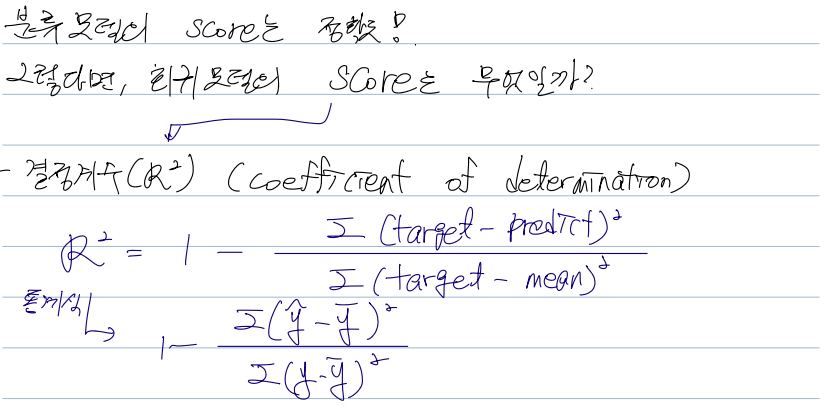 분류 모델의 score는 정확도!
그렇다면, 회귀 모델의 score는 무엇일까?
- 결정계수(R²) (coefficient of determination)
R² = 1 - Σ(target - predict)² / Σ(target - mean)²
통계식 1 - Σ(ŷ - ȳ)² / Σ(y - ȳ)²